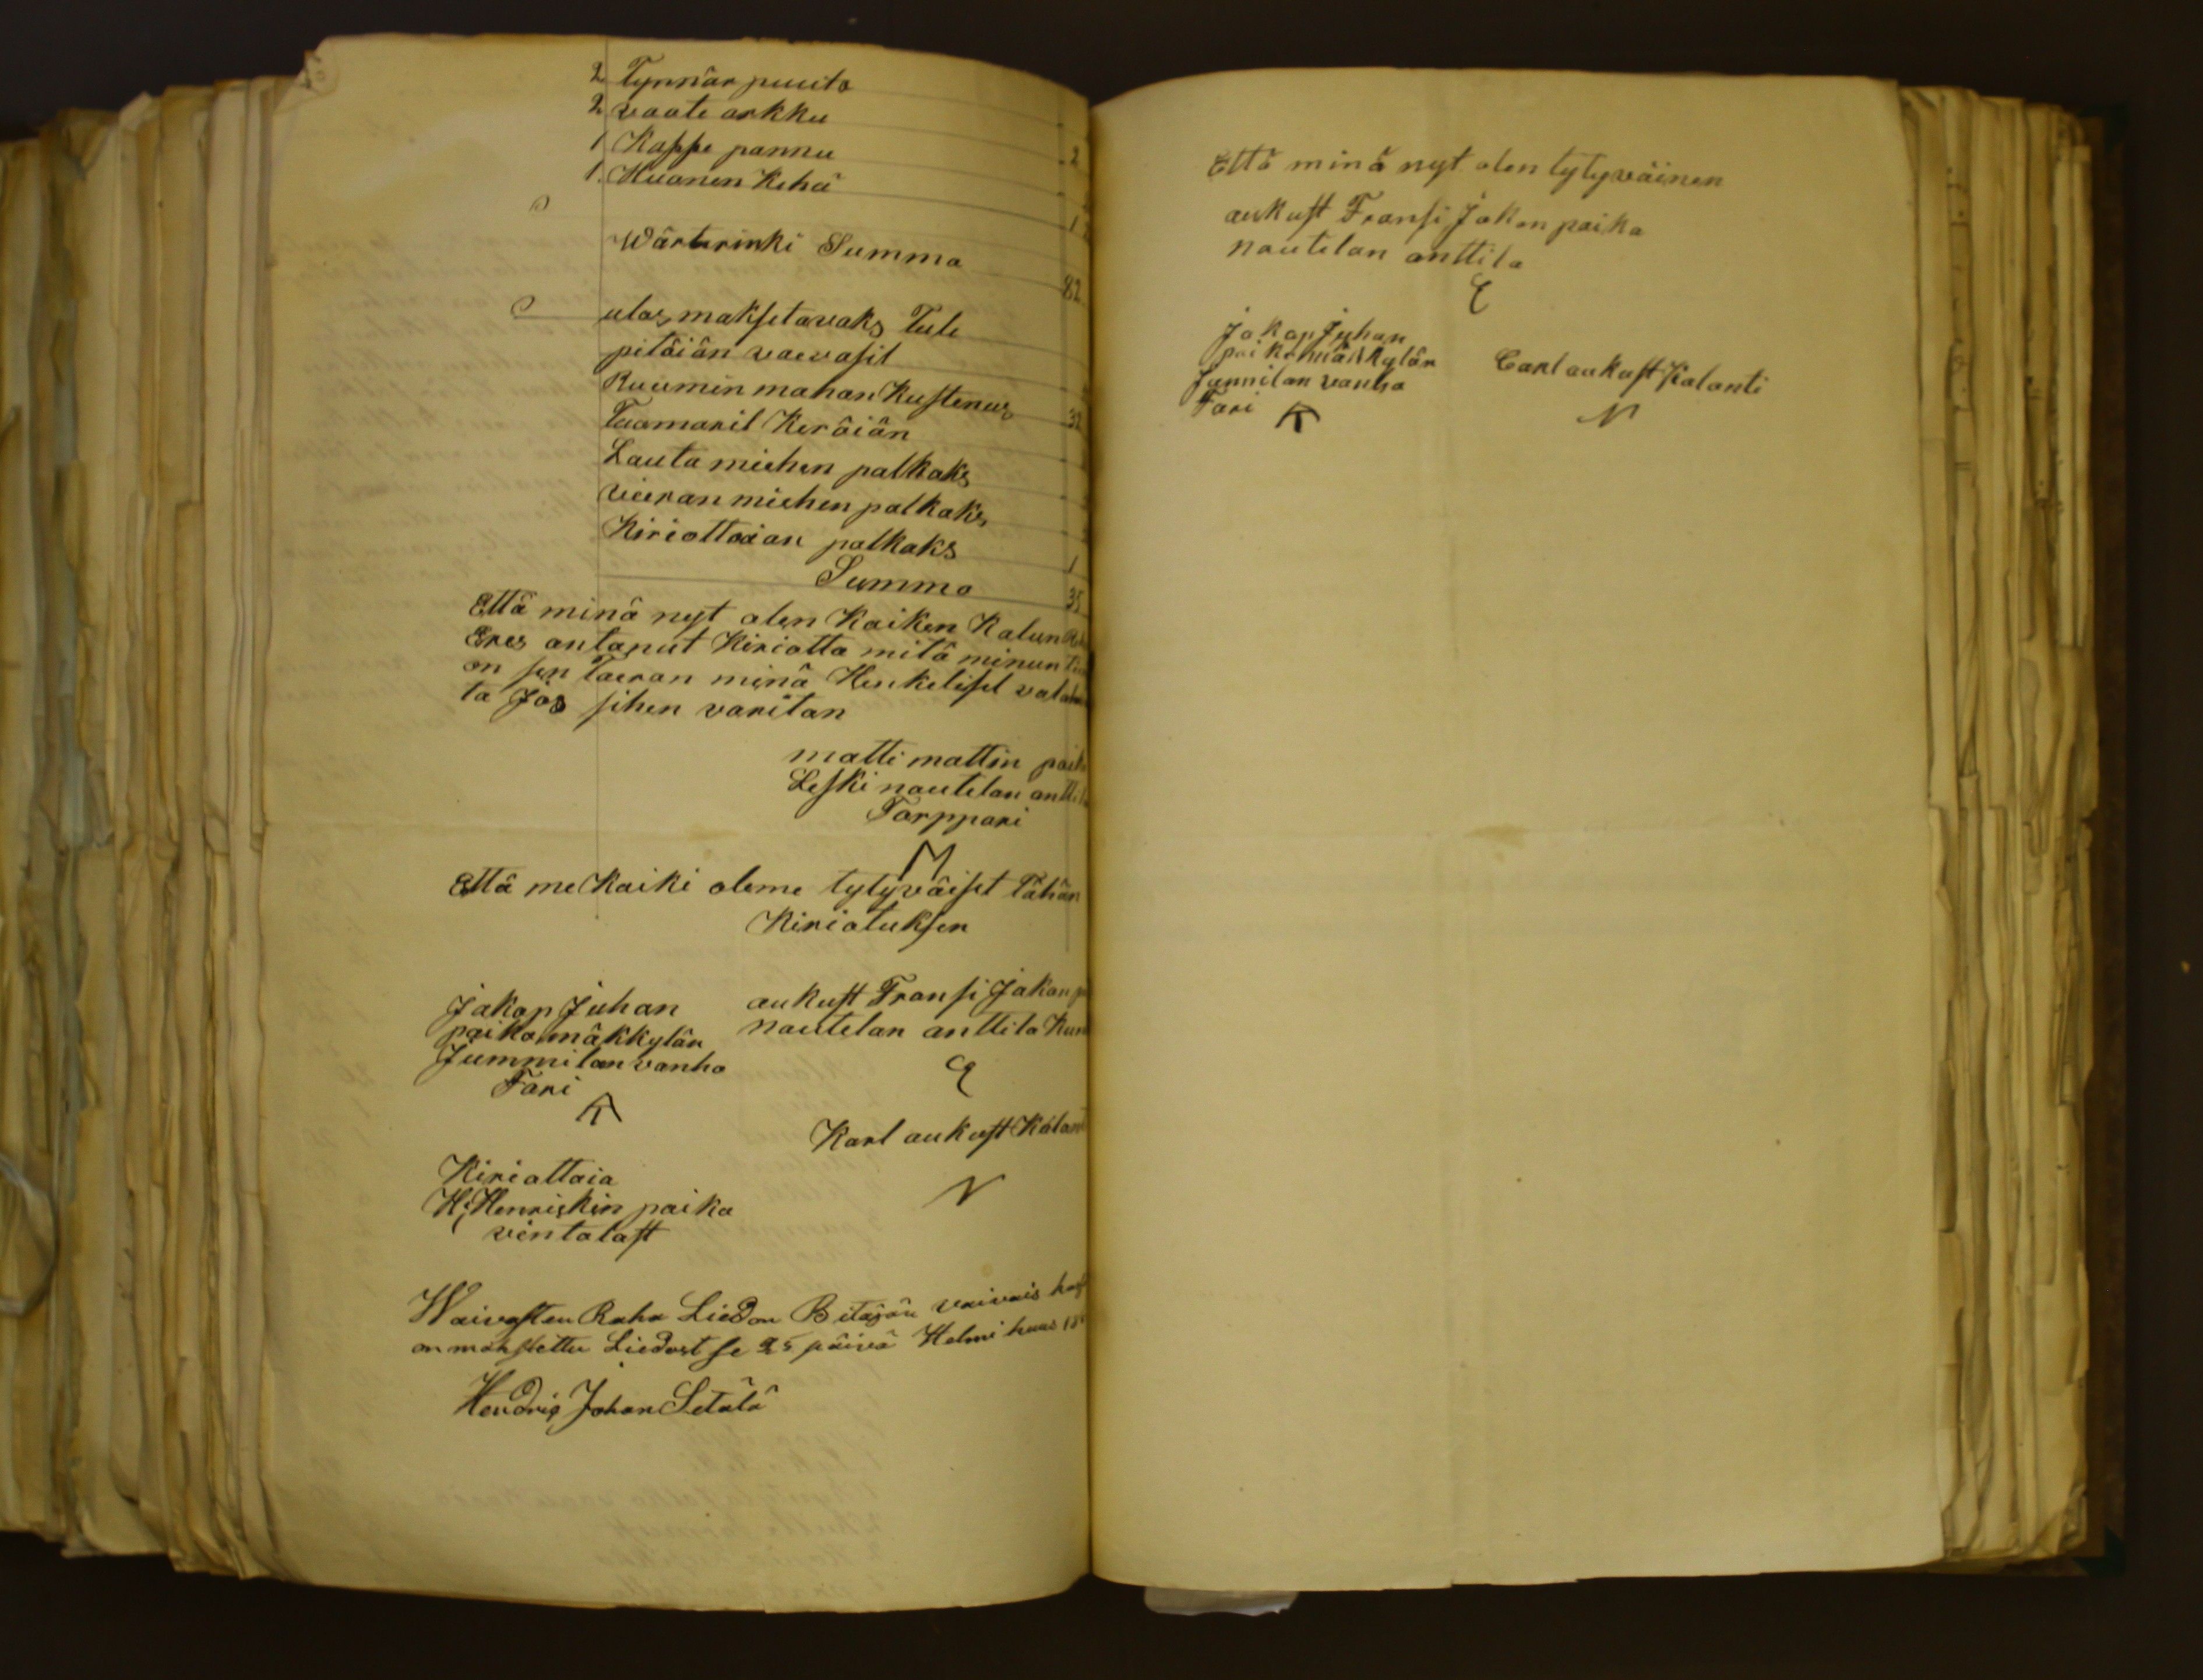 2 Tynnär puuta
2 vaate arkku
1 Kappe pannu 2
1 Huonen Kehä
1
Wärterinki Summa
82
ulos maksetavaks Tule
pitäiän vaevasil
Ruumin mahan Kustenus 32
Tuomaril Keräiän
Lauta miehen palkaks
vieran miehen palkaks
Kiriottaian palkaks 1
Summa 35
Että minä nyt olen Kaiken Kalun
Eres antanut Kiriotta mitä minun
on sen Taeran minä Henkelisel
ta Jos sihen varitan
matti mattin
Leski nautelan
Torppari
M
Että me Kaiki oleme tytyväiset Tähän
Kiriotuksen
Jakop Juhan
paika mäkkylän
Jummilan vanha
Fari
aukust Fransi Jakon
nautelan anttila
Karl aukust
N
Kiriottaia
H, Henriskin paika
vintalast
Waivasten Raha Liedon Bitäjän vaivais
on maksettu Liedost se 25 päivä Helmi kuus
Hendrig Johan Setälä
Että minä nyt olen tytyväinen
aukust Fransi Jakon paika
nautelan anttila
Jakop Juhan
paika mäkkylän
Junnilan vanha
Fari
Carl aukust Kalanti
N